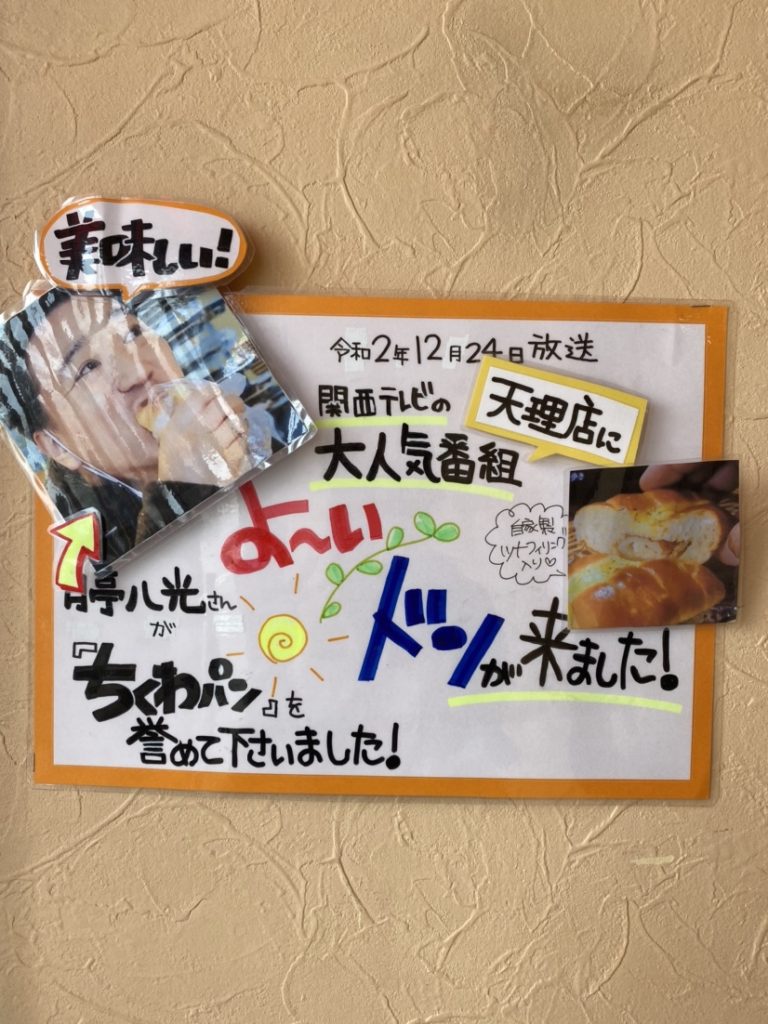 美味しい!
令和2年12月24日 放送
関西テレビの
大人気番組
天理店に
よ〜い
ドンが来ました!
自家製
ツナフィリング
入り♡
亭八光さん
が
『ちくわパン』を
誉めて下さいました!